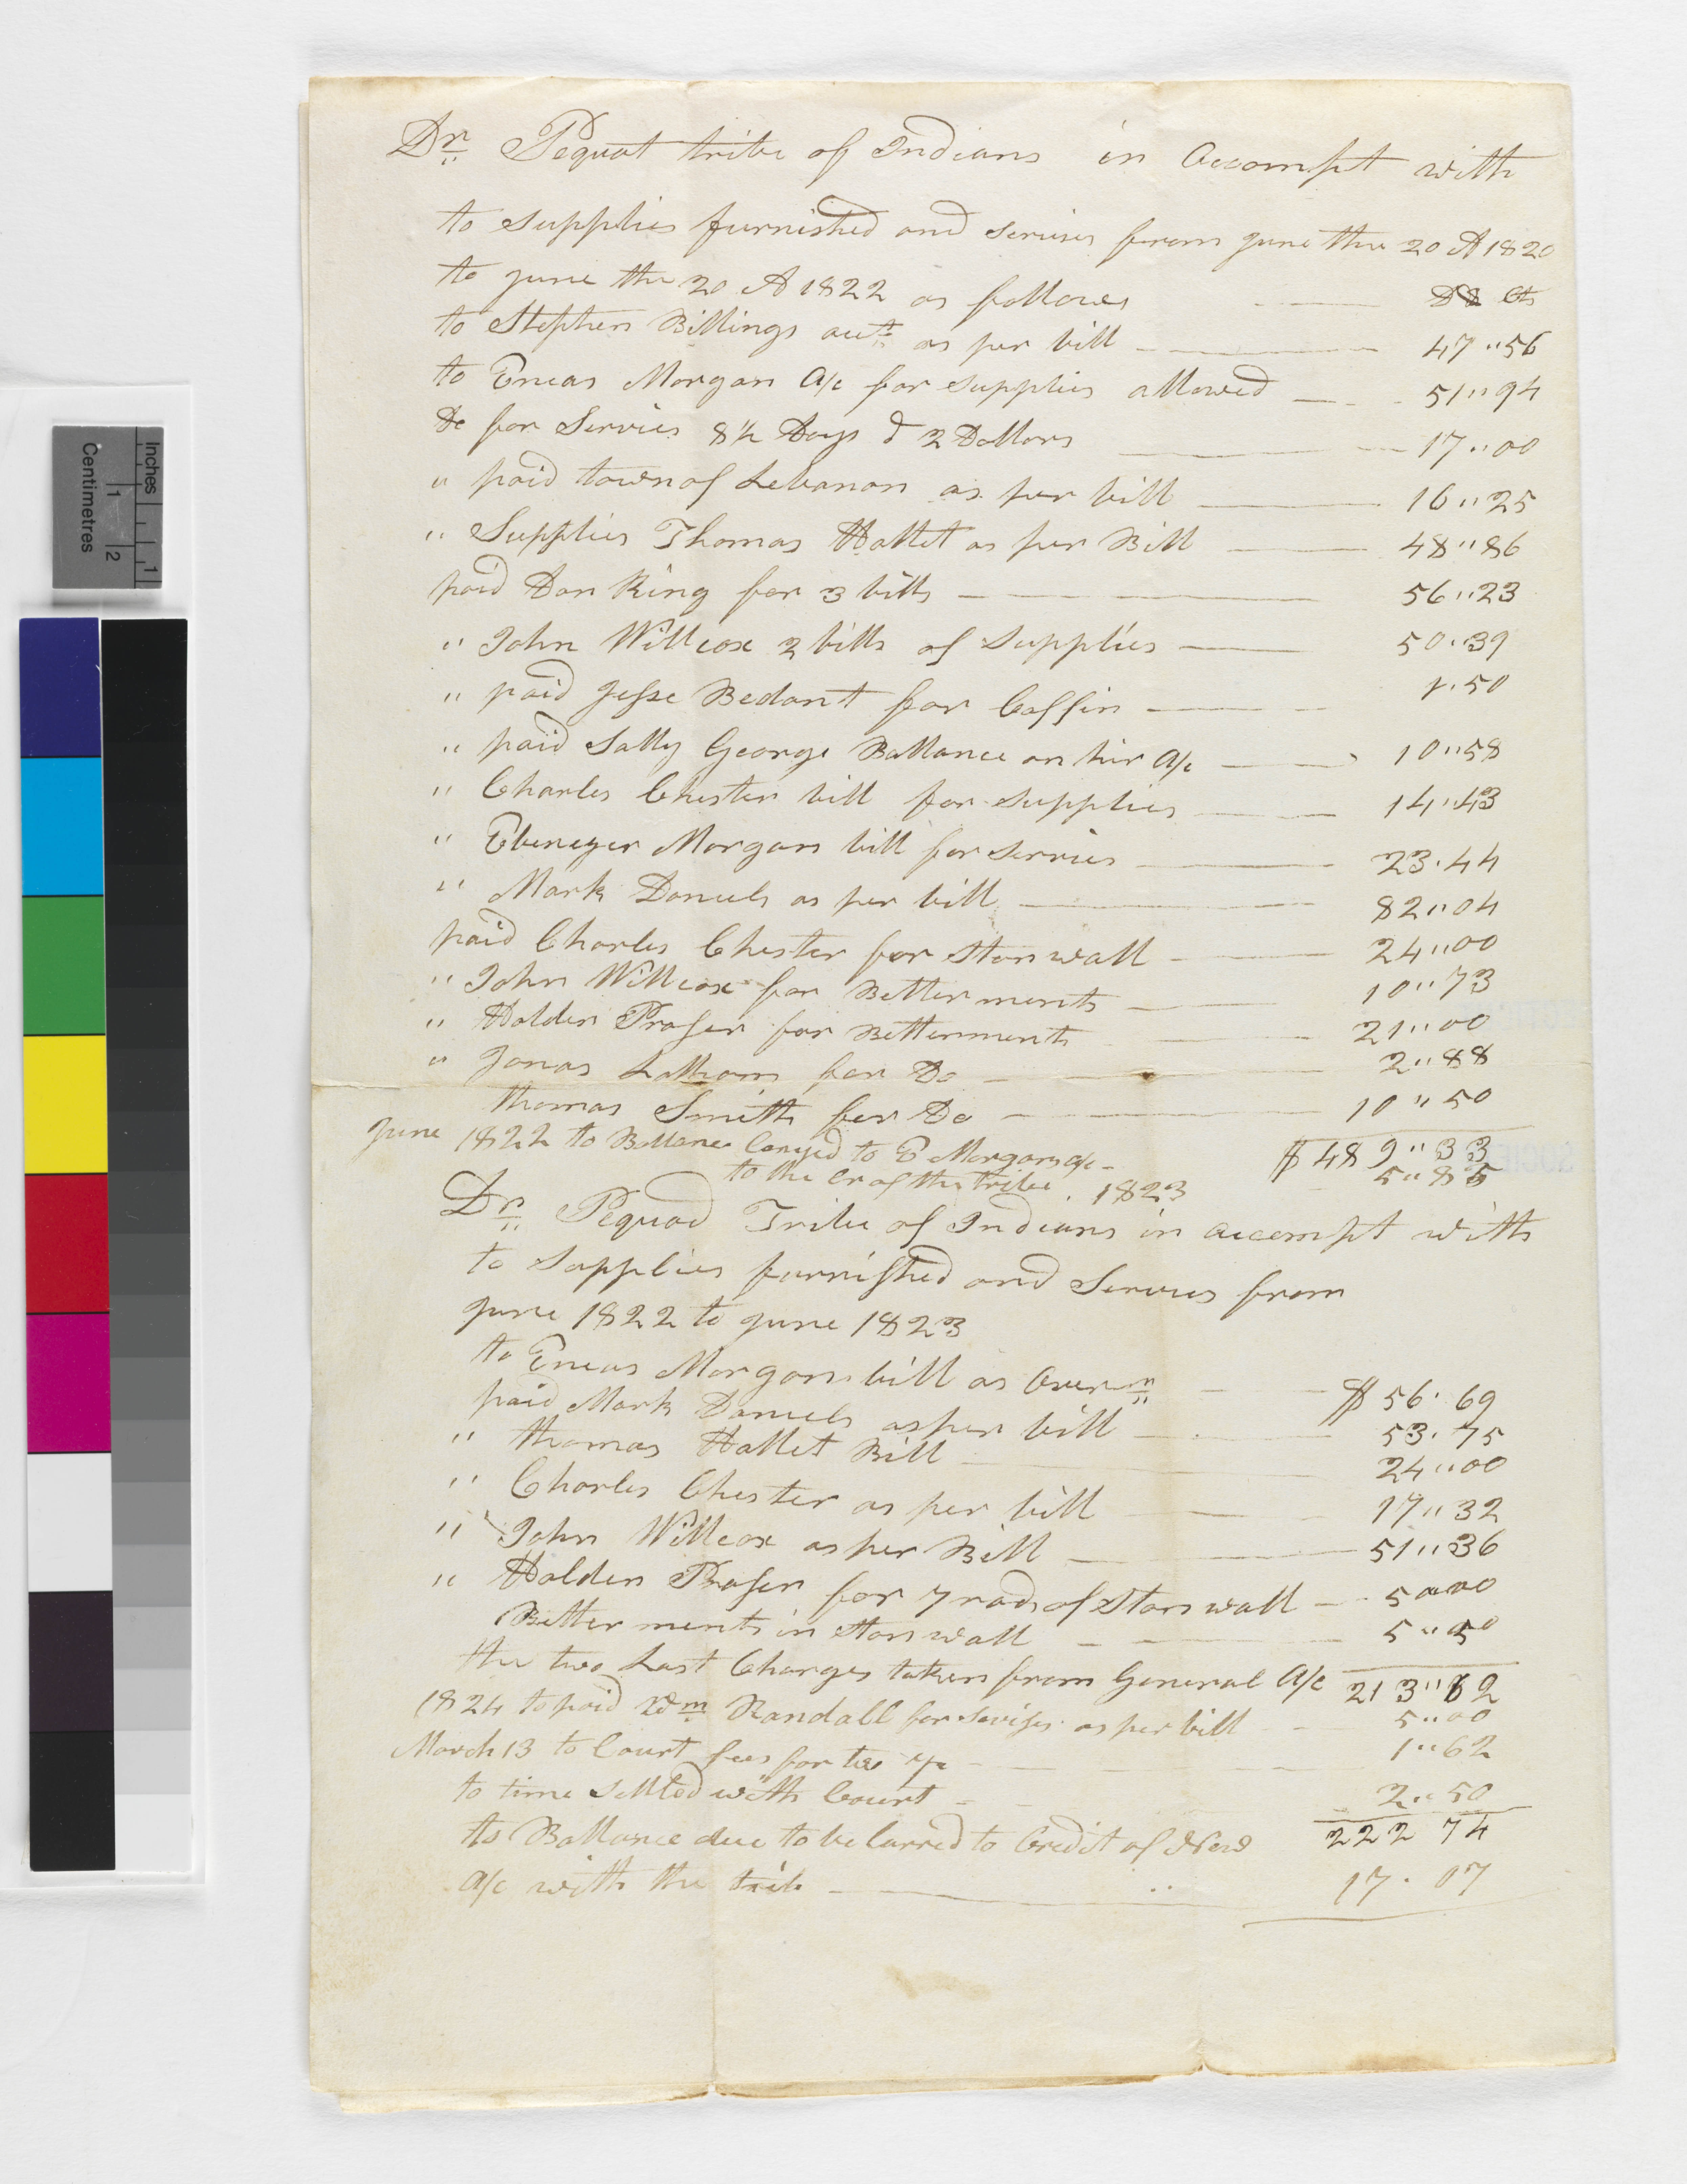 Dr Pequot tribe of Indians in Accompt with
to Supplies furnished and servises from June the 20 A 1820
to June the 20 A 1822 as followes D$ Cts
to Stephen Billings acct as per bill 47"56
to Eneas Morgan A/c for supplies allowed 51"94
Do for Servies 8½ Days d 2 Dollars 17"00
" paid town of Lebanon as per bill 16"25
" Supplies Thomas Hallet as per Bill 48"86
paid Dan King for 3 bills 56"23
" John Willcox 2 bills of Supplies 50"39
" paid Jesse Bedant for Coffin 1.50
" paid Sally George Ballance on hir A/c 10"58
" Charles Chester bill for supplies 14"43
" Ebenezer Morgan bill for servies 23.44
" Mark Daniels as per bill 82"04
paid Charles Chester for Ston wall 24"00
" John Willcox for Betterments 10"73
" Holden Proser for Betterments 21"00
" Jonas Latham for Do 2"88
thomas Smith for Do 10"50
$489"33
June 1822 to Ballance Carryed to E Morgans a/c 5"85
to the Cr of the tribe. 1823
Dr Pequod Tribe of Indians in accompt with
to Supplies furnished and Servies from
June 1822 to June 1823
to Eneas Morgans bill as Overr $56.69
paid Mark Daniels as per bill 53.75
" thomas Hallet Bill 24"00
" Charles Chester as per bill 17"32
" John Willcox as per Bill 51"36
" Holden Proser for 7 rods of Ston wall 5"00
Better ments in Ston wall 5"50
the two Last Charges taken from General A/c 213"62
1824 to paid Wm Randall for servises as per bill 5"00
March 13 to Court fees for two 1"62
to time Settled with Court 2"50
222 74
to Ballance due to be Carred to Credit of New
A/c with the trib 17.07
Inches
1
Centimetres
1
2